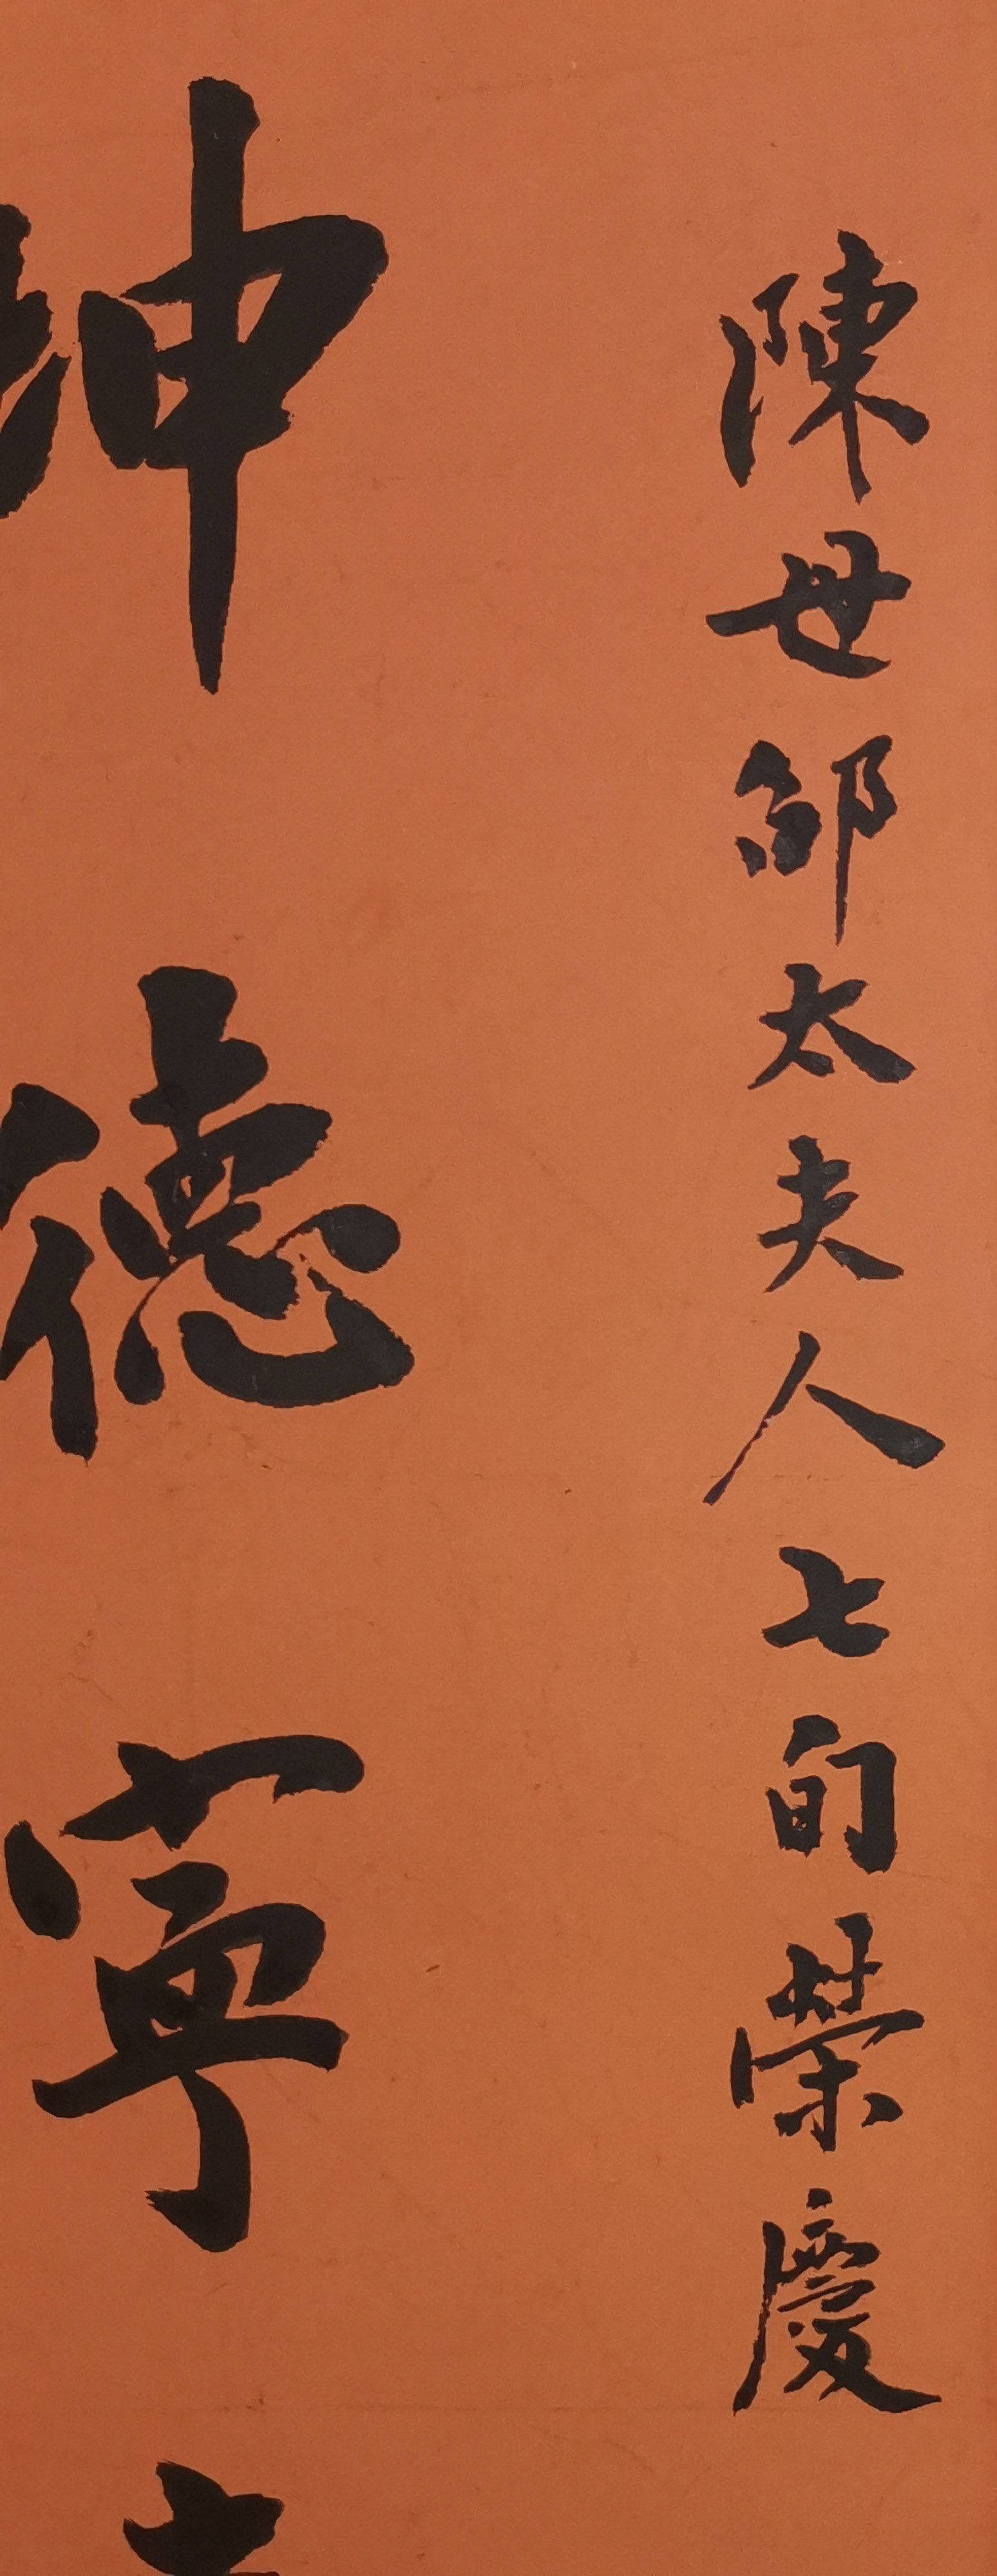 陳世鄒太夫人七旬榮慶
坤德寧